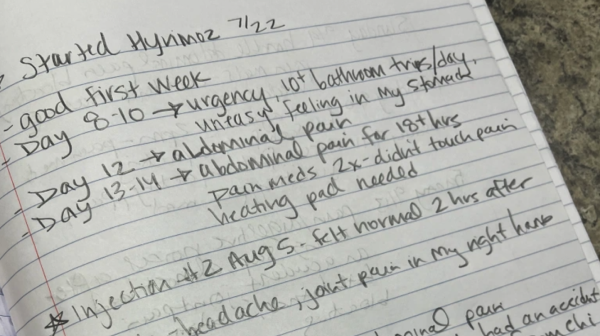 Started Hyrimoz 7/22
- good first week
- Day 8-10 → urgency 10+ bathroom trips/day,
uneasy feeling in my stomach
- Day 12 → abdominal pain
- Day 13-14 → abdominal pain for 18+ hrs
pain meds 2x - didn't touch pain
heating pad needed
* Injection #2 Aug 5 - felt normal 2 hrs after
headache, joint pain in my right hand
pain
had an accident